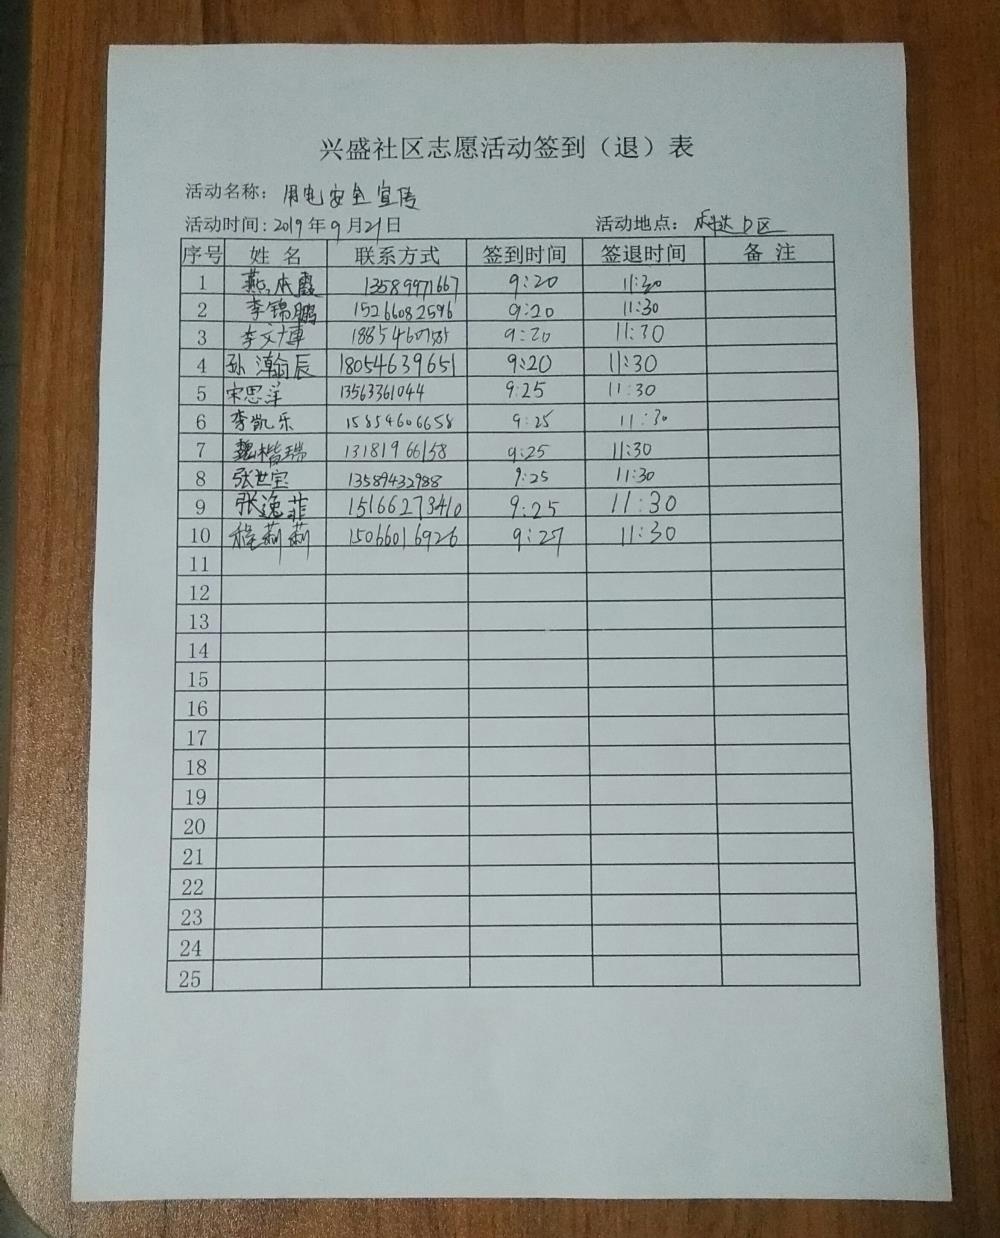 兴盛社区志愿活动签到（退）表
活动名称：用电安全宣传
活动时间：2019年9月21日 活动地点：科达D区
序号 姓名 联系方式 签到时间 签退时间 备注
1 燕本霞 13589971667 9:20 11:30
2 李锦鹏 15266082596 9:20 11:30
3 李文博 9:20 11:30
4 孙瀚辰 18054639651 9:20 11:30
5 宋思洋 13563361044 9:25 11:30
6 李凯乐 15854606658 9:25 11:30
7 魏楷瑞 13181966158 9:25 11:30
8 张世宝 13589432988 9:25 11:30
9 张逸菲 15166273410 9:25 11:30
10 程莉莉 15066016926 9:27 11:30
11
12
13
14
15
16
17
18
19
20
21
22
23
24
25